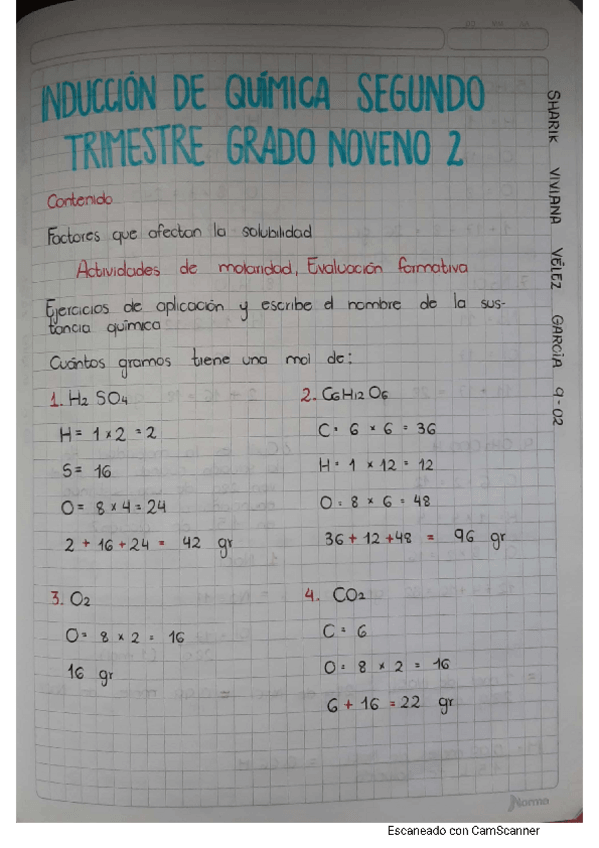 INDUCCIÓN DE QUÍMICA SEGUNDO
TRIMESTRE GRADO NOVENO 2
SHARIK VIVIANA VÉLEZ GARCIA 9-02
Contenido
Factores que afectan la solubilidad
Actividades de molaridad, Evaluación formativa
Ejercicios de aplicación y escribe el nombre de la sus-
tancia química
Cuántos gramos tiene una mol de:
1. H2 SO4
H = 1 x 2 = 2
S = 16
O = 8 x 4 = 24
2 + 16 + 24 = 42 gr
2. C6H12O6
C = 6 x 6 = 36
H = 1 x 12 = 12
O = 8 x 6 = 48
36 + 12 + 48 = 96 gr
3. O2
O = 8 x 2 = 16
16 gr
4. CO2
C = 6
O = 8 x 2 = 16
6 + 16 = 22 gr
Norma
Escaneado con CamScanner